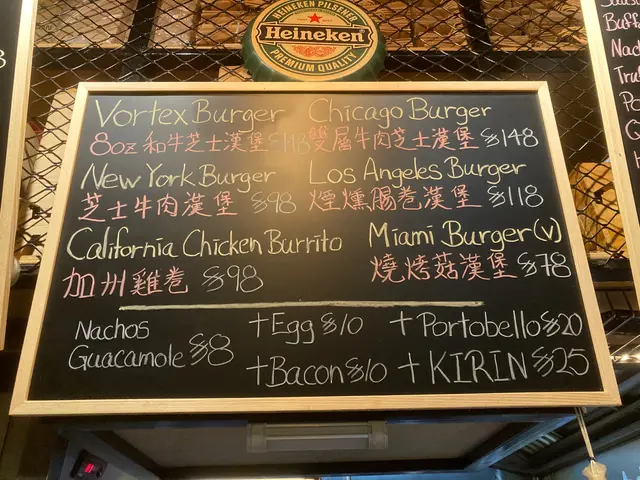 HEINEKEN PILSENER
Heineken
PREMIUM QUALITY
Vortex Burger
8oz 和牛芝士漢堡 $148
Chicago Burger
雙層牛肉芝士漢堡 $148
New York Burger
芝士牛肉漢堡 $98
Los Angeles Burger
煙燻腸卷漢堡 $118
California Chicken Burrito
加州雞卷 $98
Miami Burger (v)
燒烤菇漢堡 $78
Nachos
Guacamole $8
+Egg $10
+Bacon $10
+Portobello $20
+KIRIN $25